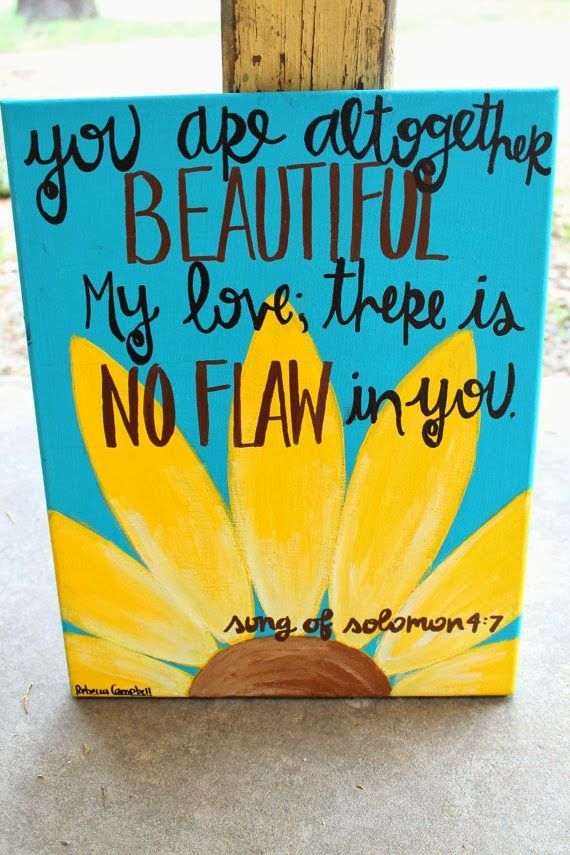 you are altogether
BEAUTIFUL
My love; there is
NO FLAW in you.
song of solomon 4:7
Rebecca Campbell